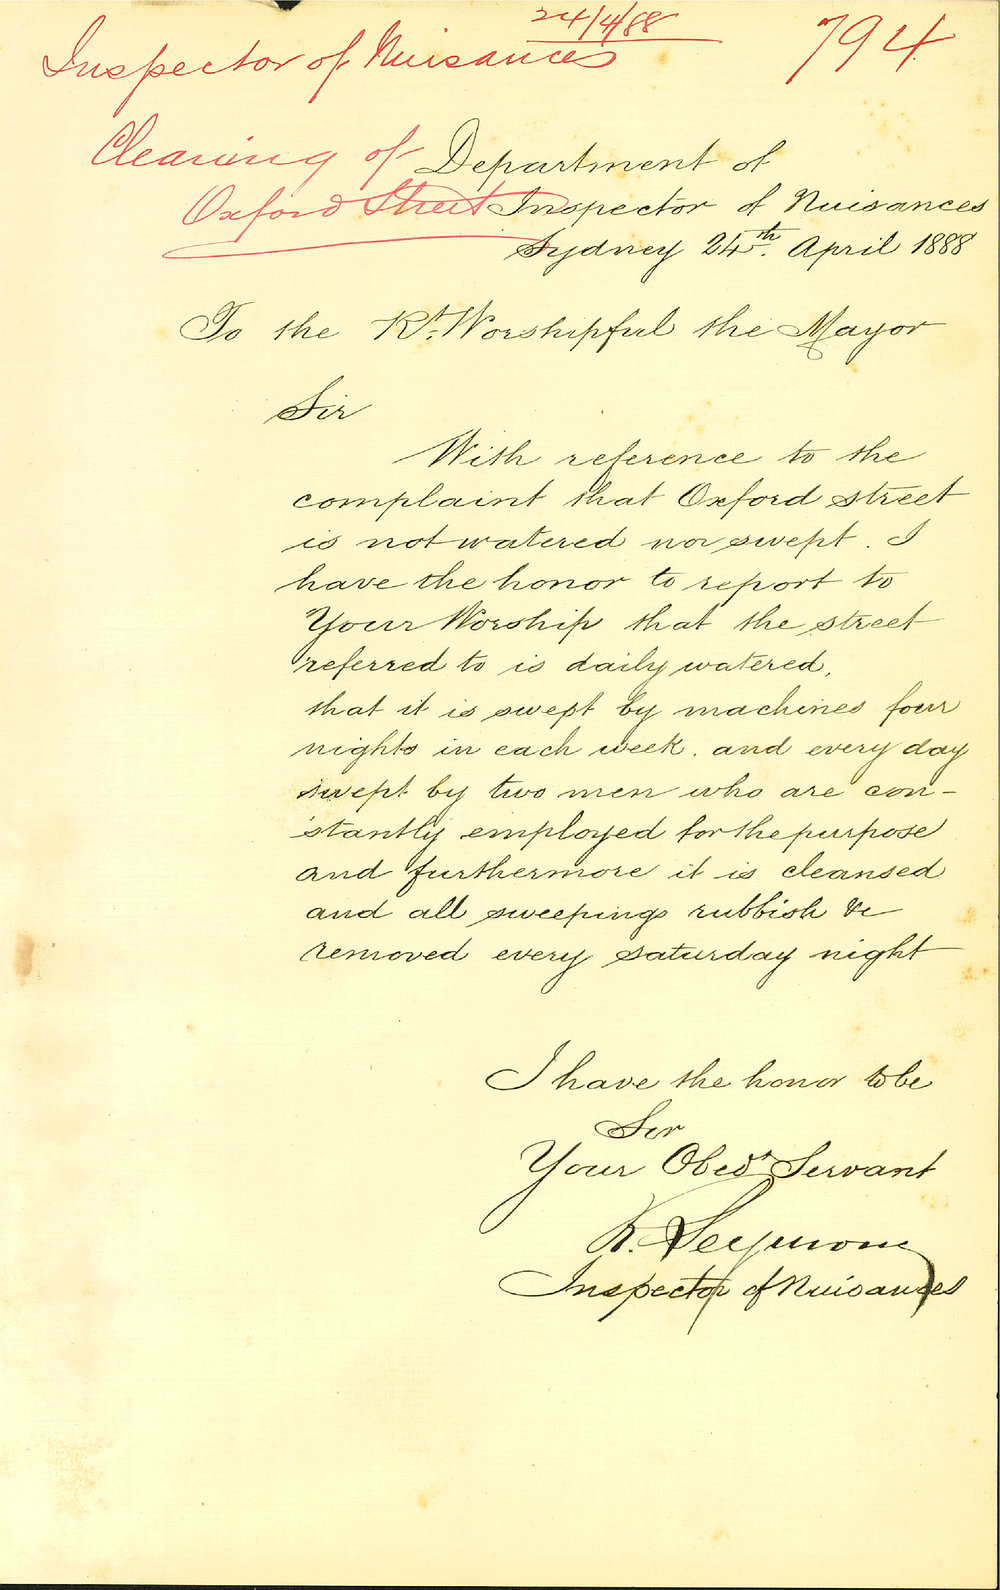 24/4/88
Inspector of Nuisances
794
Cleaning of
Oxford Street
Department of
Inspector of Nuisances
Sydney 24th. April 1888
To the Rt. Worshipful the Mayor
Sir
With reference to the
complaint that Oxford street
is not watered nor swept. I
have the honor to report to
Your Worship that the street
referred to is daily watered,
that it is swept by machines four
nights in each week. and every day
swept by two men who are con-
stantly employed for the purpose
and furthermore it is cleansed
and all sweepings rubbish &c
removed every saturday night
I have the honor to be
Sir
Your Obedt Servant
R. Seymour
Inspector of Nuisances